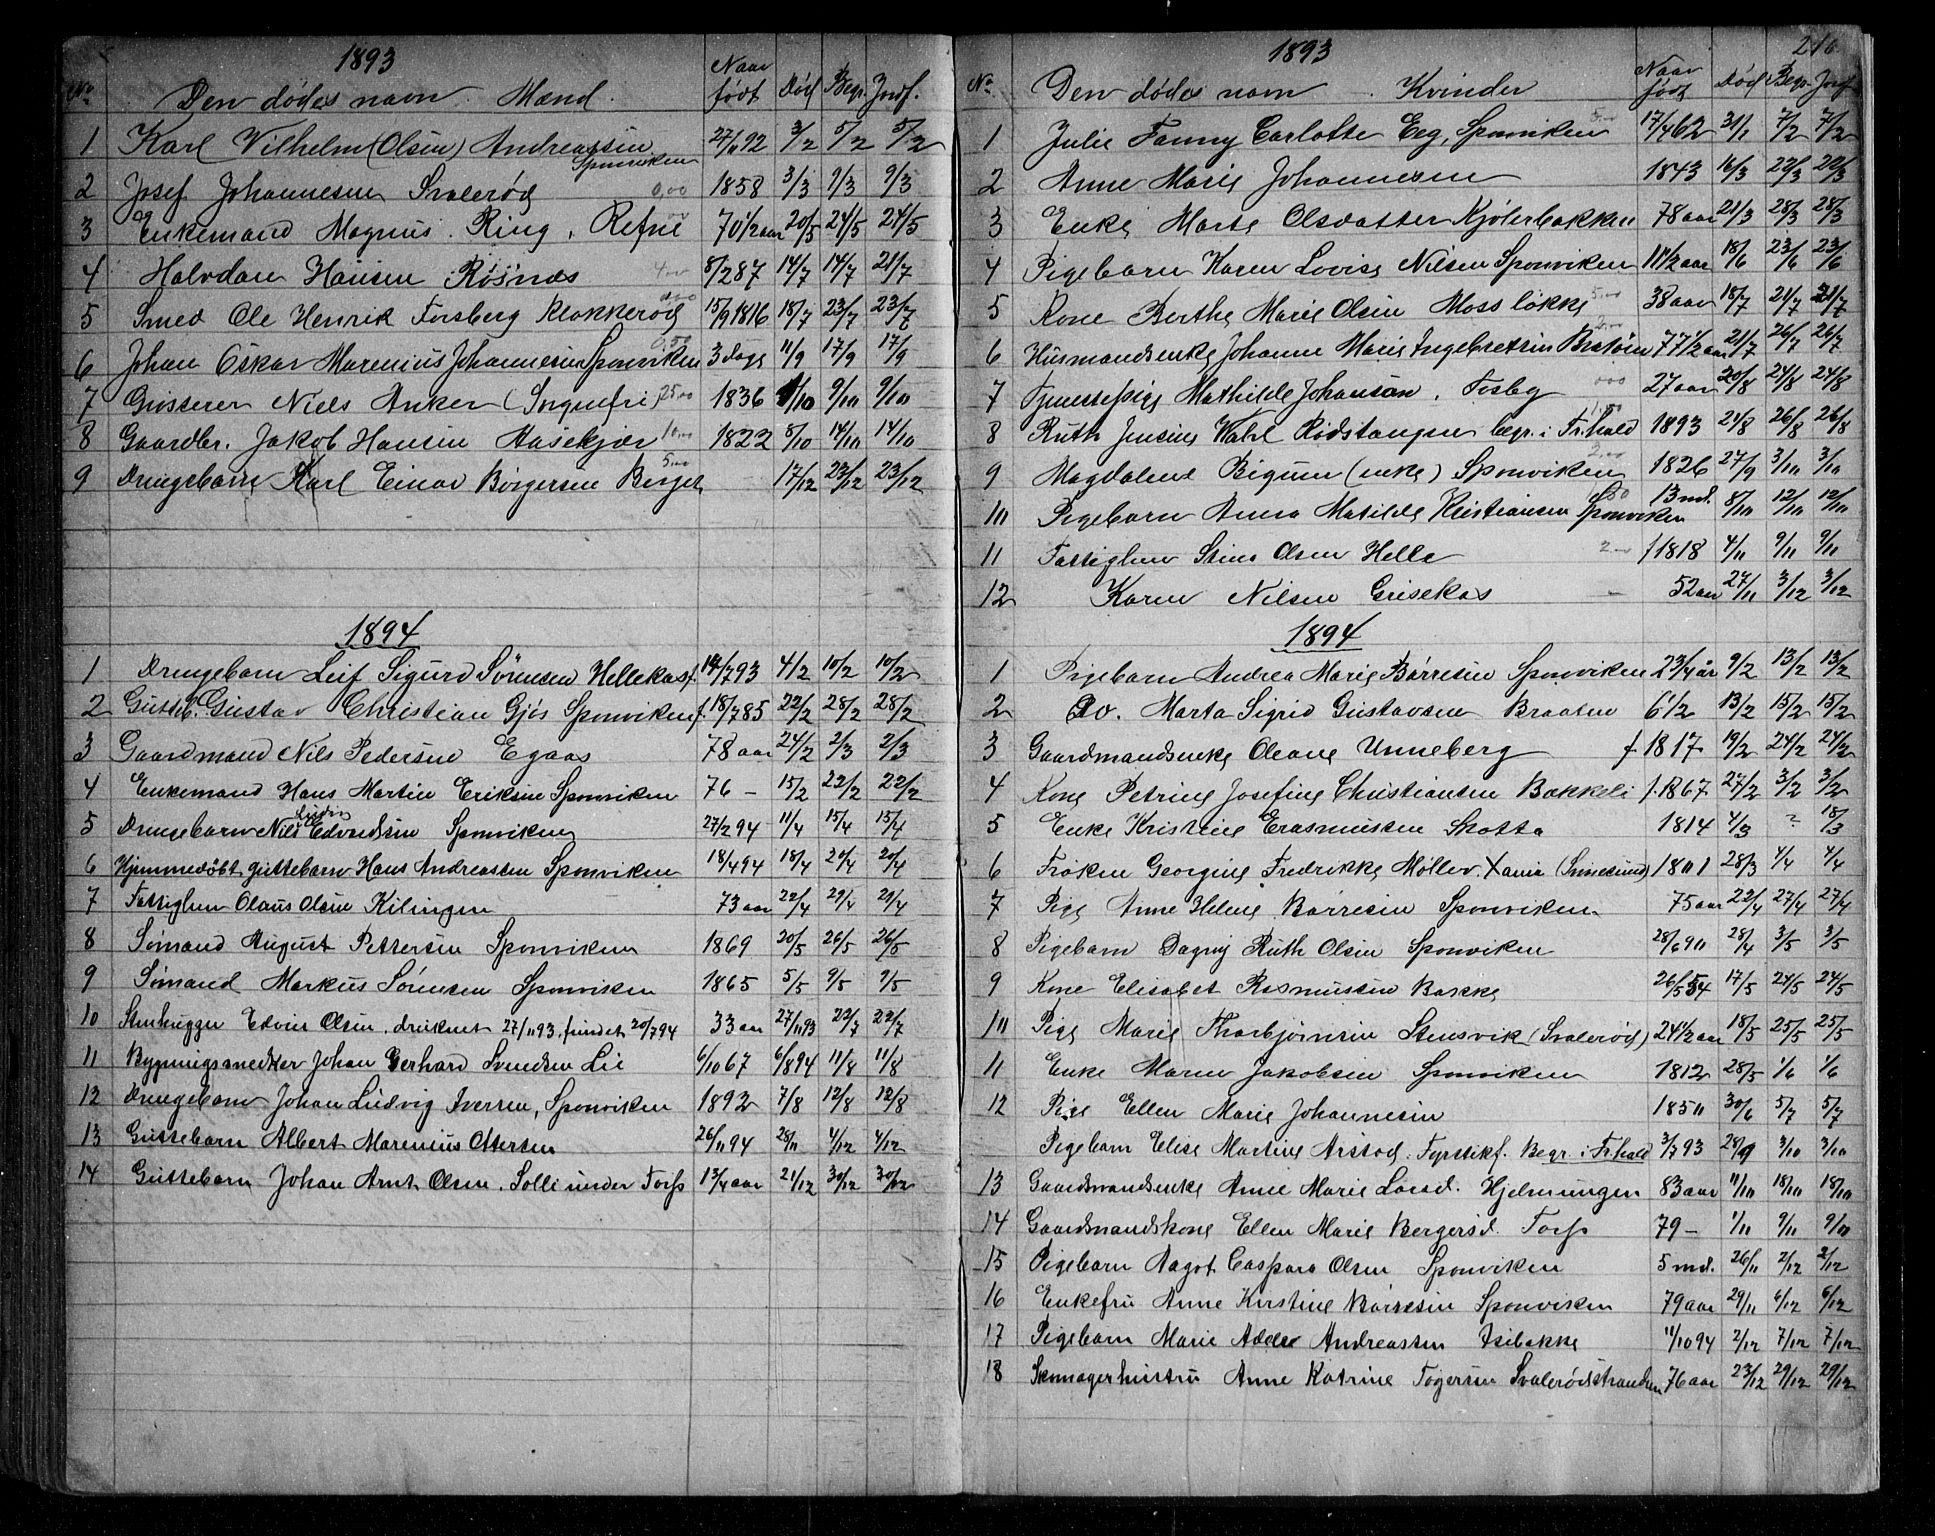 1893
No. Den dødes navn. Mænd. Naar født Død Begr. Jordf.
1 Karl Vilhelm (Olsen) Andreassen Sponviken 27/11 92 3/2 5/2 5/2
2 Josef Johannesen Svalerød 0,00 1858 3/3 9/3 9/3
3 Enkemand Magnus Ring, Refne 70 1/2 aar 20/5 24/5 24/5
4 Halvdan Hansen Røsnæs 4 00 8/2 87 14/7 14/7 21/7
5 Smed Ole Henrik Forsberg Klokkerød 15/9 1816 18/7 23/7 23/7
6 Johan Oskar Marenius Johannesen Sponviken 0,50 3 dage 11/9 17/9 17/9
7 Grosserer Niels Anker (Sorgenfri) 25 00 1836 1/10 9/10 9/10
8 Gaardbr. Jakob Hansen Hasekjær 10 00 1822 8/10 14/10 14/10
9 Drengebarn Karl Einar Børgersen Berget 5 00 17/12 23/12 23/12
1894
1 Drengebarn Leif Sigurd Sørensen Hellekas f. 19/7 93 4/2 10/2 10/2
2 Gutteb. Gustav Christian Gjøs Sponviken f. 18/7 85 22/2 28/2 28/2
3 Gaardmand Nils Pedersen Egaas 78 aar 24/2 2/3 2/3
4 Enkemand Hans Martin Eriksen Sponviken 76 – 15/2 22/2 22/2
5 Drengebarn Nils Edvin Edvardsen Sponviken 27/2 94 11/4 15/4 15/4
6 Hjemmedøbt guttebarn Hans Andreassen Sponviken 18/4 94 18/4 20/4 20/4
7 Fattiglem Olaus Olsen Kilingen 73 aar 22/4 29/4 29/4
8 Sømand August Pettersen Sponviken 1869 20/5 26/5 26/5
9 Sømand Markus Sørensen Sponviken 1865 5/5 9/5 9/5
10 Stenhugger Edvin Olsen, druknet 27/11 93, fundet 20/7 94 33 aar 27/11 93 22/7 22/7
11 Bygningssnedker Johan Gerhard Svendsen Lie 6/10 67 6/8 94 11/8 11/8
12 Drengebarn Johan Ludvig Iversen, Sponviken 1892 7/8 12/8 12/8
13 Guttebarn Albert Marenius Ottersen 26/11 94 28/11 4/12 4/12
14 Guttebarn Johan Arnt Olsen, Solli under Torp 1 3/4 aar 21/12 30/12 30/12
1893
216
No. Den dødes navn – Kvinder Naar født Død Begr. Jordf.
1 Julie Fanny Carlotte Eeg, Sponviken 5 00 17/4 62 31/1 7/2 7/2
2 Anne Marie Johannesen 1843 16/3 22/3 22/3
3 Enke Marte Olsdatter Kjølerbakken 78 aar 21/3 28/3 28/3
4 Pigebarn Karen Lovise Nilsen Sponviken 1 1/2 aar 18/6 23/6 23/6
5 Kone Berthe Marie Olsen Mossløkke 5 00 38 aar 18/7 21/7 21/7
6 Husmandsenke Johanne Marie Ingebretsen Bratøen 2,00 77 1/2 aar 21/7 26/7 26/7
7 Tjenestepige Mathilde Johansen. Fosby 000 27 aar 20/8 24/8 24/8
8 Ruth Jensine Wahl Rødstangen begr. i Fr.hald 1893 24/8 26/8 26/8
9 Magdalene Bignum (enke) Sponviken 2 00 1826 27/9 3/10 3/10
10 Pigebarn Anna Matilde Kristiansen Sponviken 13 md. 8/10 12/10 12/10
11 Fattiglem Stine Olsen Helle 2 00 f 1818 4/11 9/11 9/11
12 Karen Nilsen Grisekas – 52 aar 27/11 3/12 3/12
1894
1 Pigebarn Andrea Marie Børresen Sponviken 2 3/4 år 9/2 13/2 13/2
2 Do. Marta Sigrid Gustavsen Braaten 6 1/2 13/2 15/2 15/2
3 Gaardmandsenke Oleane Unneberg f 1817 19/2 24/2 24/2
4 Kone Petrine Josefine Christiansen Bakkeli f. 1867 27/2 3/2 3/2
5 Enke Kristine Erasmussen Skotta 1814 4/3 ? 18/3
6 Frøken Georgine Fredrikke Møller. Xania (Svinesund) 1801 28/3 4/4 4/4
7 Pige Anne Helene Børresen Sponviken 75 aar 22/4 27/4 27/4
8 Pigebarn Dagny Ruth Olsen Sponviken 28/6 90 28/4 3/5 3/5
9 Kone Elisabet Rasmussen Bakke 26/5 54 17/5 24/5 24/5
10 Pige Marie Thorbjørnsen Stensvik (Svalerød) 24 1/2 aar 18/5 25/5 25/5
11 Enke Maren Jakobsen Sponviken 1812 28/5 1/6 1/6
12 Pige Ellen Marie Johannesen 1850 30/6 5/7 5/7
Pigebarn Elise Martine Arstad. Fyrstikf. Begr. i Fr.hald 3/7 93 28/9 3/10 3/10
13 Gaardmandsenke Anne Marie Larsd. Hjelmungen 83 aar 11/10 18/10 18/10
14 Gaardmandskone Ellen Marie Bergersd. Torp 79 – 1/11 9/11 9/11
15 Pigebarn Aagot Caspara Olsen Sponviken 5 md. 26/11 2/12 2/12
16 Enkefru Anne Kirstine Børresen Sponviken 79 aar 29/11 6/12 6/12
17 Pigebarn Marie Adele Andreassen Isebakke 11/10 94 2/12 7/12 7/12
18 Skomagerhustru Anne Katrine Togersen Svalerødstranden 76 aar 23/12 29/12 29/12